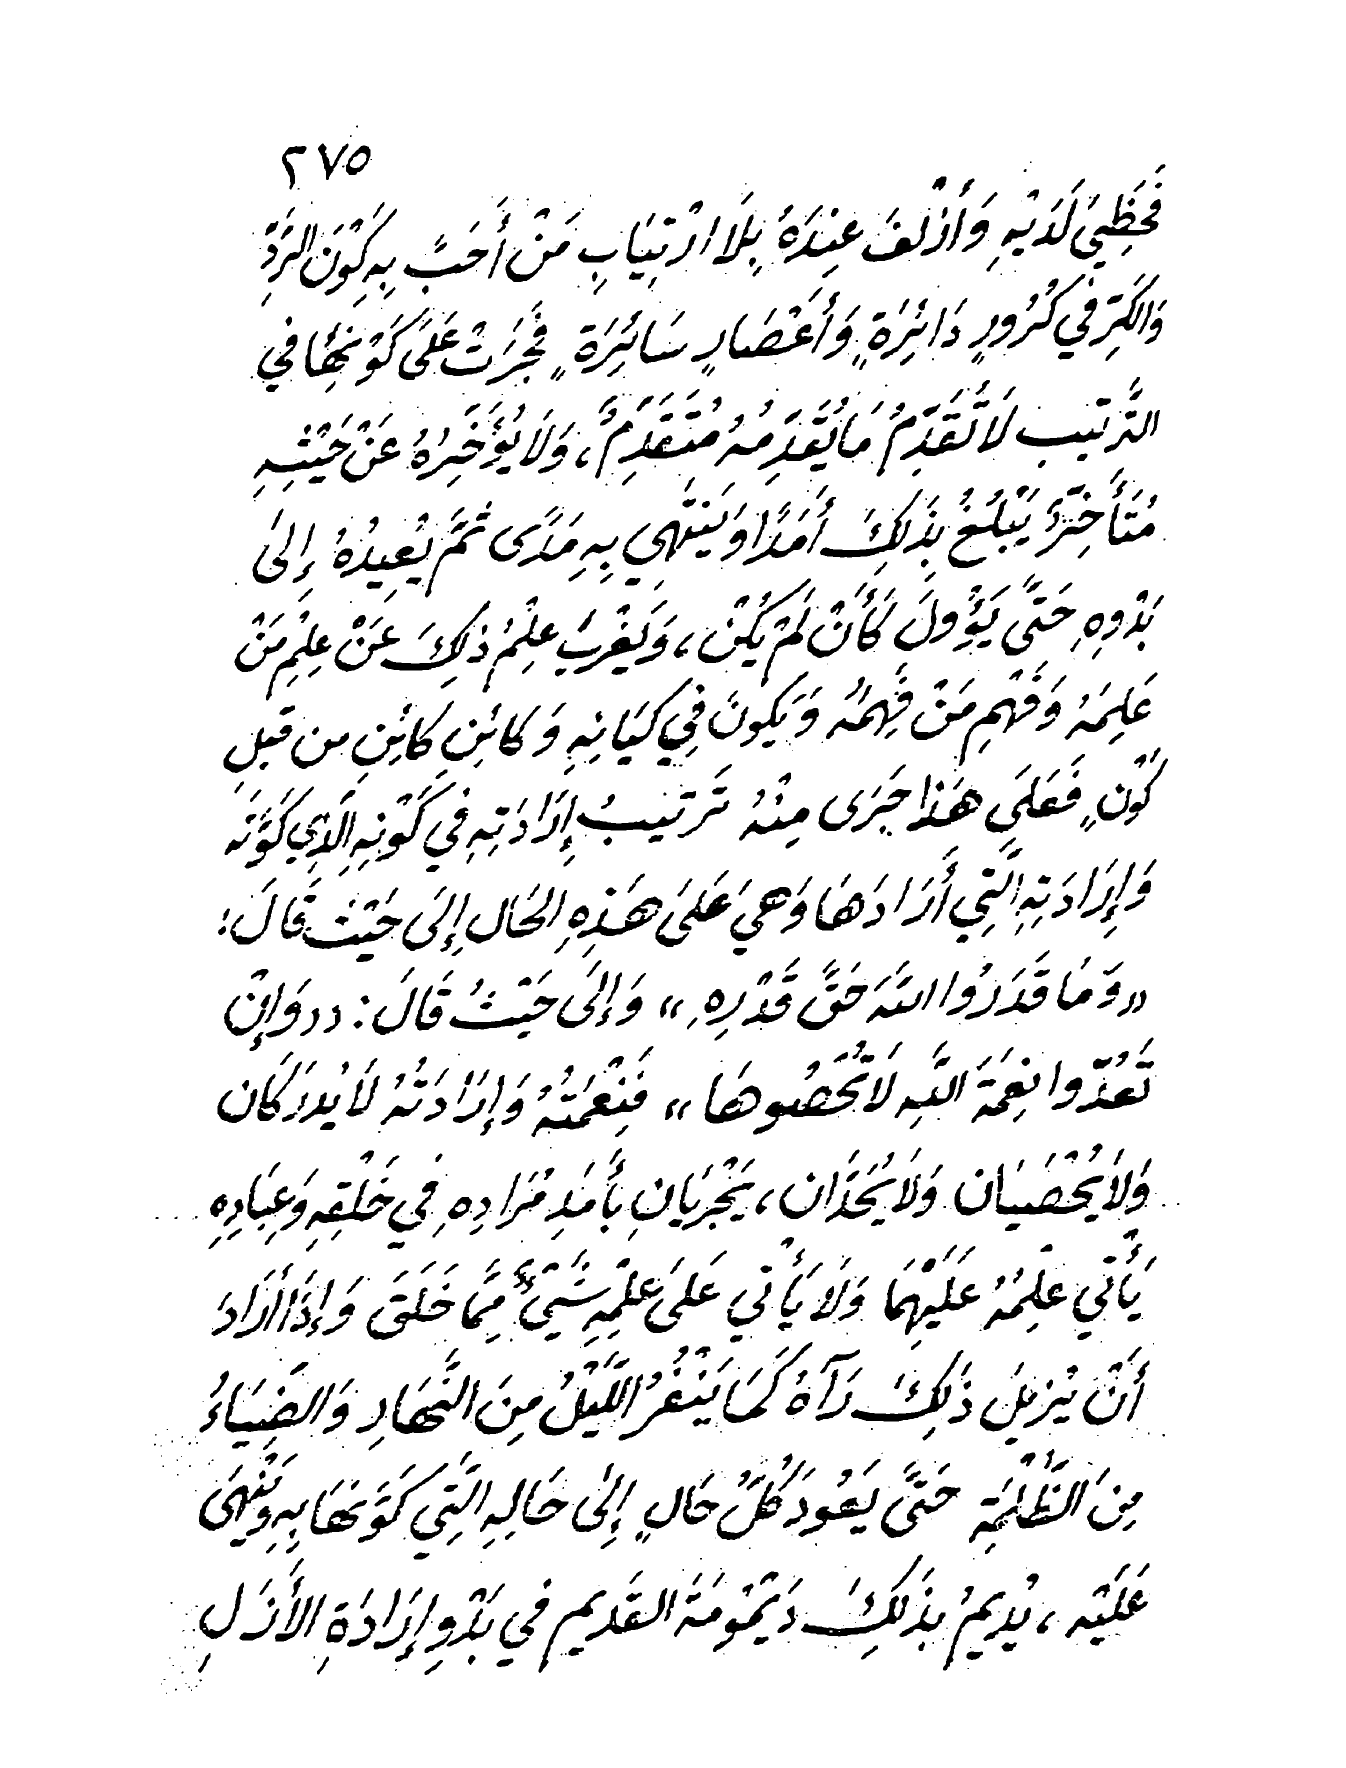 ٢٧٥
فَحَظِيَ لَدَيْهِ وَأَزْلَفَ عِنْدَهُ بِلَا ارْتِيَابٍ مَنْ أَحَبَّ بِهِ كَوْنَ الرَّدِّ
وَالكَرِّ فِي كُرُورٍ دَائِرَةٍ وَأَعْصَارٍ سَائِرَةٍ فَجَرَتْ عَلَى كَوْنِهَا فِي
التَّرتيب لَا تُقَدِّمُ مَا يُقَدِّمُهُ مُتَقَدِّمٌ، وَلَا يُؤَخِّرُهُ عَنْ حَيْثِهِ
مُتَأَخِّرٌ يَبْلُغُ بِذَلِكَ أَمَدًا وَيَنْتَهِي بِهِ مَدًى ثُمَّ يُعِيدُهُ إِلَى
بَدْوِهِ حَتَّى يَؤُولَ كَأَنْ لَمْ يَكُنْ، وَيَغْرِبَ عِلْمُ ذلِكَ عَنْ عِلْمِ مَنْ
عَلِمَهُ وَفَهْمِ مَنْ فَهِمَهُ وَيَكونَ فِي كِيَانِهِ وَكَائِنِ كَائِنٍ من قبلِ
كَوْنٍ فَعَلَى هَذَا جَرَى مِنْهُ تَرتيبُ إِرَادَتِهِ فِي كَوْنِهِ الَّذِي كَوَّنَه
وَإِرَادَتِهِ الَّتِي أَرَادَهَا وَهِيَ عَلَى هَذِهِ الحَالِ إِلَى حَيْثُ قَالَ:
«وَمَا قَدَرُوا اللهَ حَقَّ قَدْرِهِ» وَإِلَى حَيْثُ قَالَ: «وَإِنْ
تَعُدّوا نِعْمَةَ اللهِ لَا تُحْصُوهَا» فَنِعْمَتُهُ وَإِرَادَتُهُ لَا يُدرَكَان
وَلَا يُحْصَيَان وَلَا يُحَدَّان، يَجْرِيَانِ بِأَمَدِ مُرَادِهِ فِي خَلْقِهِ وَعِبَادِهِ
يَأْتي عِلْمُهُ عَلَيْهِمَا وَلَا يَأْتي عَلَى عِلْمِهِ شَيْءٌ مِمَّا خَلَقَ وَإِذَا أَرَادَ
أَنْ يُزيلَ ذَلِكَ رَآهُ كَمَا يَنْفُرُ اللَّيْلُ مِنَ النَّهَارِ وَالضِّيَاءُ
مِنَ الظُّلْمَةِ حَتَّى يَعُودَ كُلُّ حَالٍ إِلَى حَالِهِ الَّتِي كَوَّنَهَا بِهِ وَيُنْهَى
عَلَيْه، يُدِيمُ بِذَلِكَ دَيْمُومَةَ القَديم في بَدْوِ إِرَادَةِ الأَزَلِ